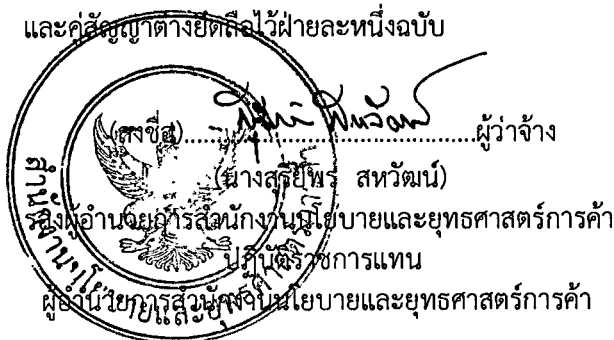 และคู่สัญญาต่างยึดถือไว้ฝ่ายละหนึ่งฉบับ
(ลงชื่อ)........................................ผู้ว่าจ้าง
(นางสุรีย์พร สหวัฒน์)
รองผู้อำนวยการสำนักงานนโยบายและยุทธศาสตร์การค้า
ปฏิบัติราชการแทน
ผู้อำนวยการสำนักงานนโยบายและยุทธศาสตร์การค้า
สำนักงานนโยบายและยุทธศาสตร์การค้า